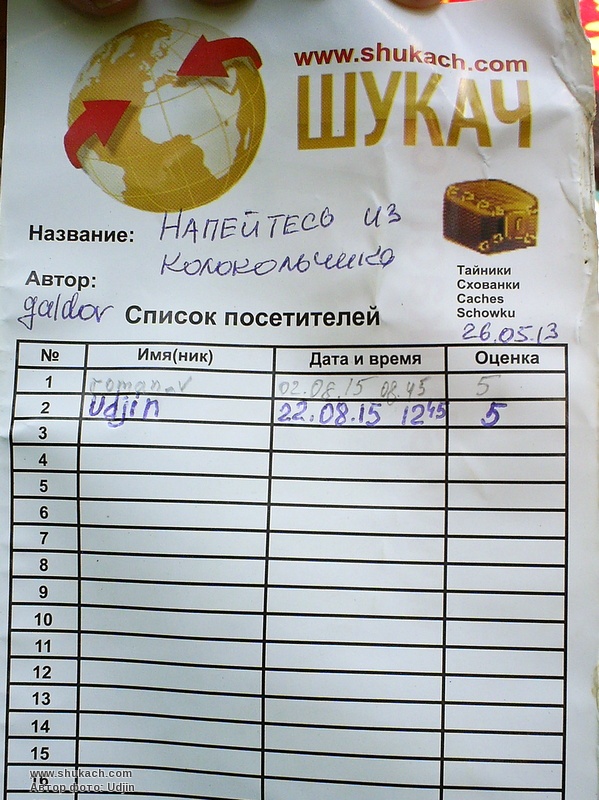 www.shukach.com
ШУКАЧ
Название: НАПЕЙТЕСЬ ИЗ
КОЛОКОЛЬЧИКА
Тайники
Схованки
Caches
Schowku
Автор:
galdor
Список посетителей
26.05.13
№ Имя(ник) Дата и время Оценка
1 roman_v 02.08.15 08.45 5
2 Udjin 22.08.15 12 45 5
3
4
5
6
7
8
9
10
11
12
13
14
15
16
www.shukach.com
Автор фото: Udjin